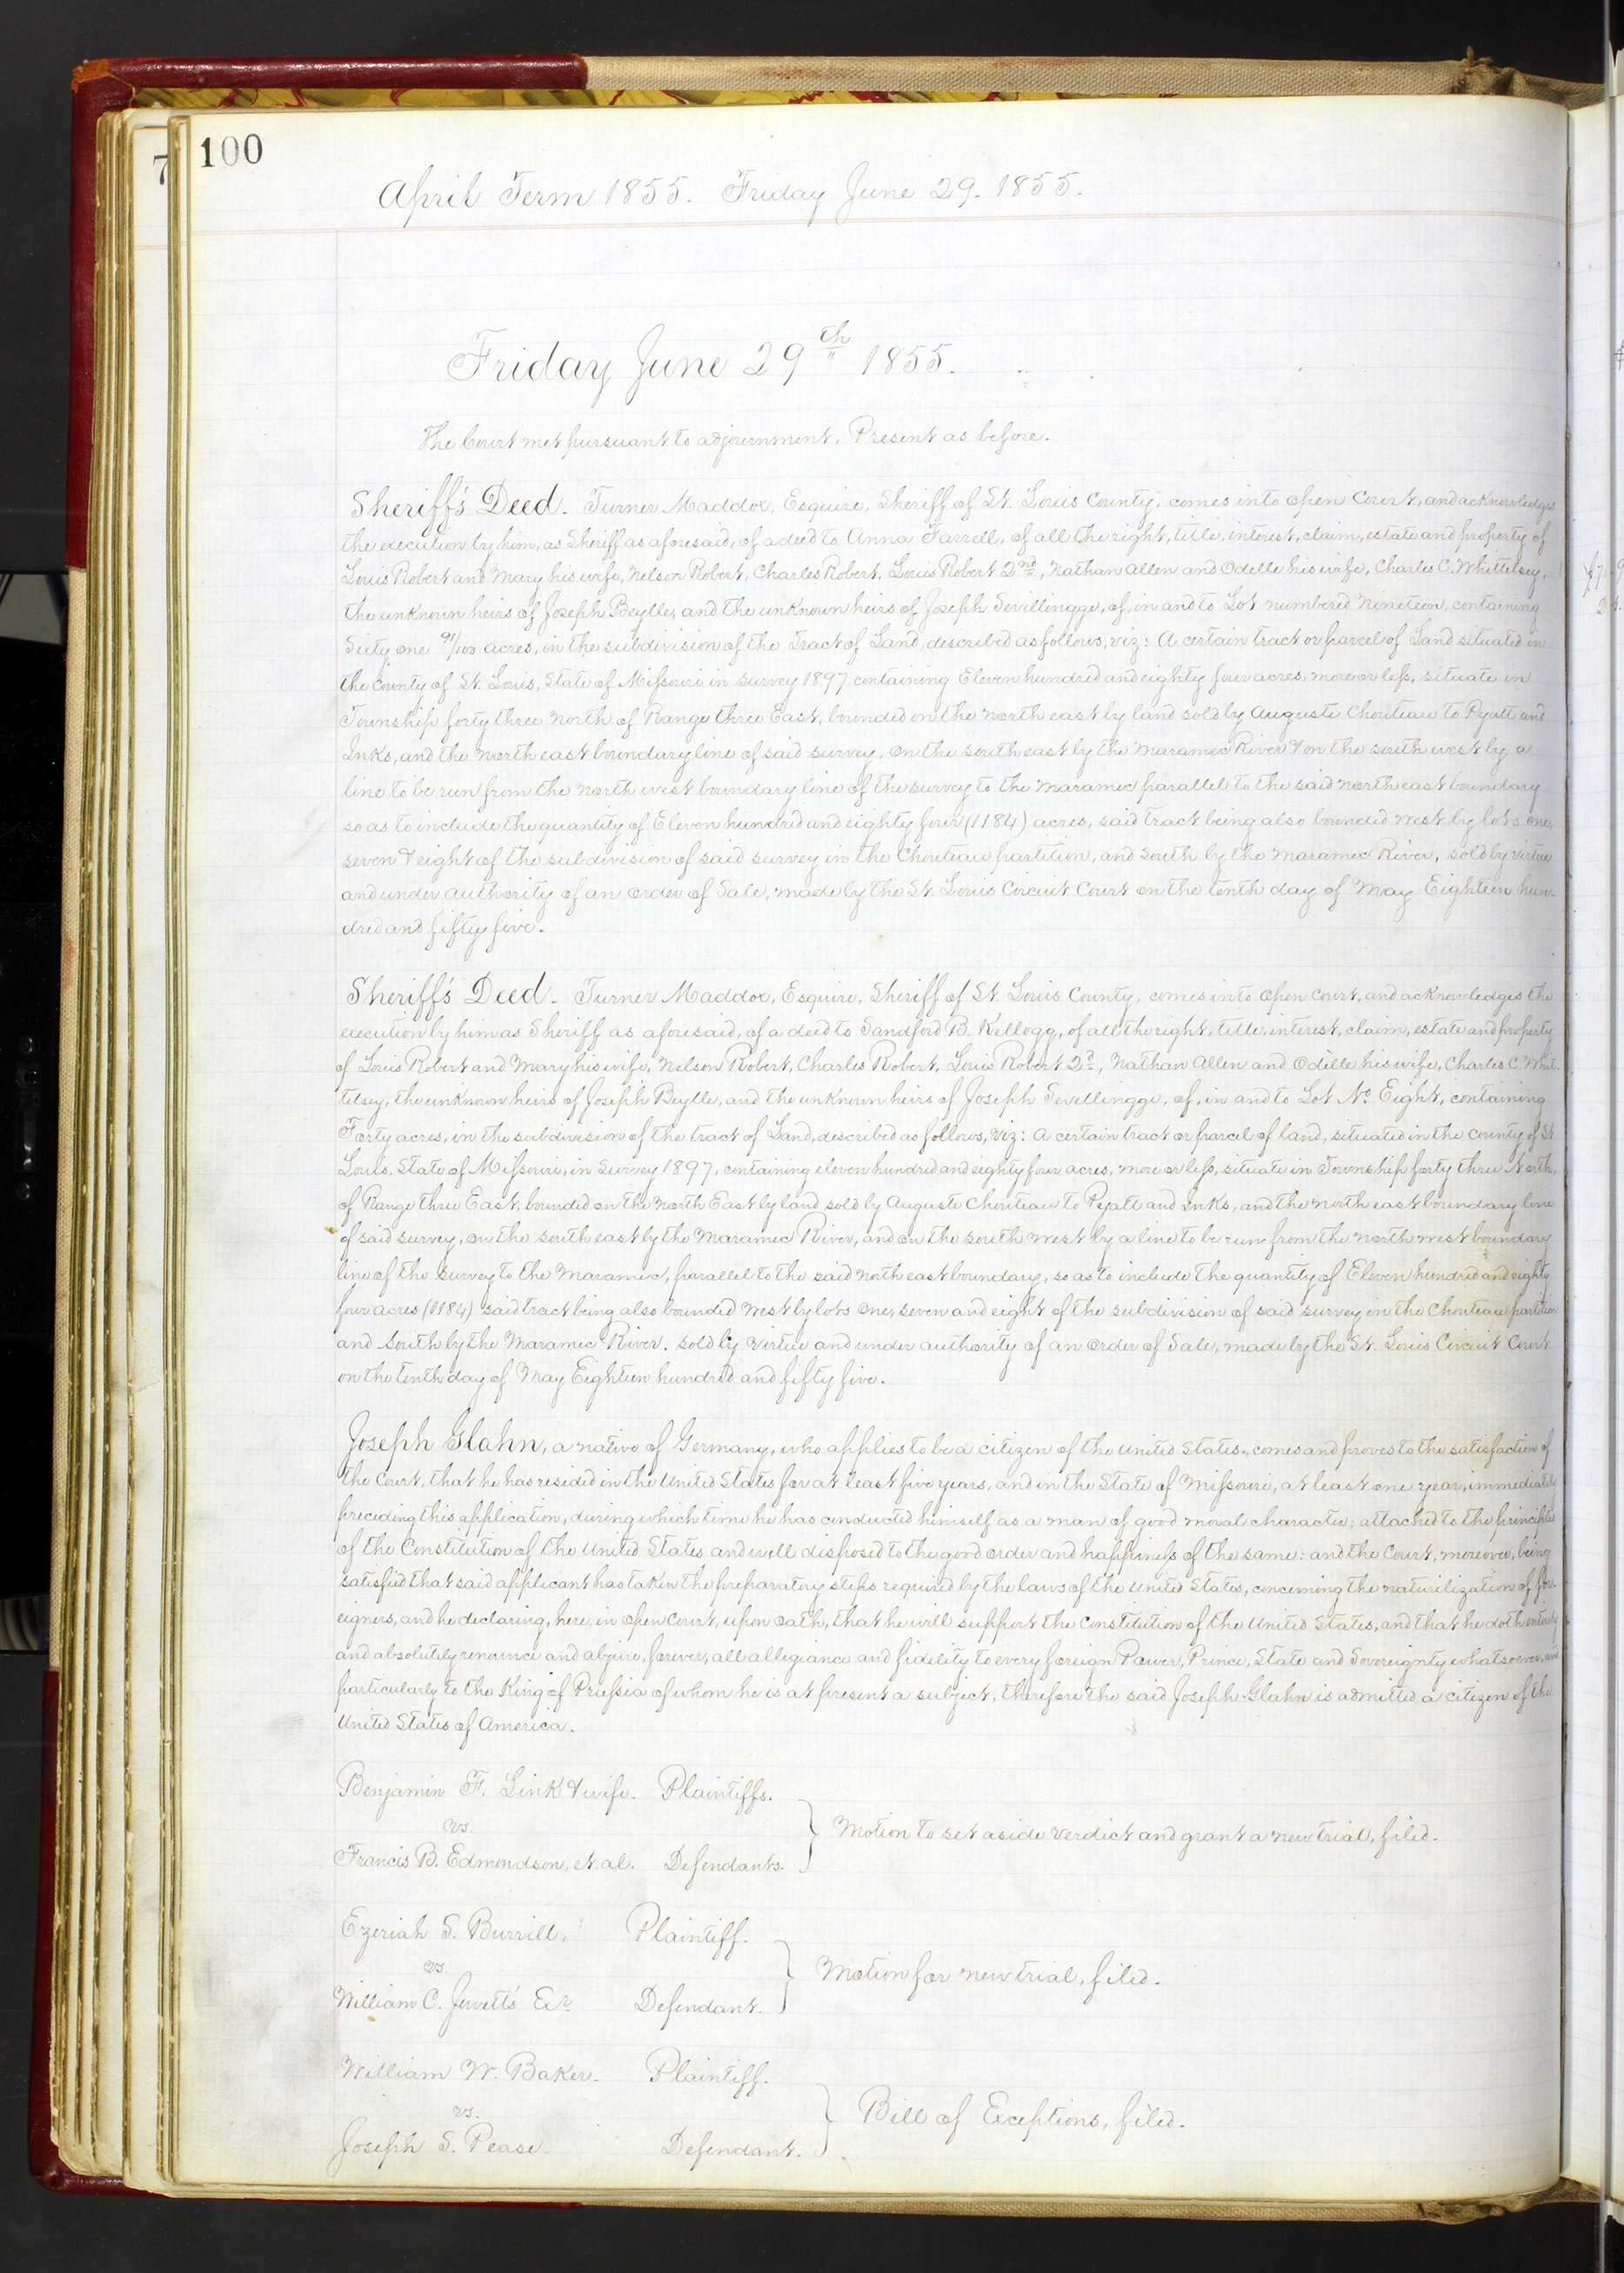 7
100
April Term 1855. Friday June 29. 1855.
Friday June 29th 1855.
The Court met pursuant to adjournment. Present as before.
Sheriff's Deed. Turner Maddox, Esquire, Sheriff of St. Louis County, comes into open Court, and acknowledges
the execution by him, as Sheriff as aforesaid, of a deed to Anna Farrell, of all the right, title, interest, claim, estate and property of
Louis Robert and Mary his wife, Nelson Robert, Charles Robert, Louis Robert 2nd, Nathan Allen and Odelle his wife, Charles C. Whittelsey,
the unknown heirs of Joseph Beylle, and the unknown heirs of Joseph Sevillingge, of, in and to Lot numbered Nineteen, containing
Sixty one 91/100 acres, in the subdivision of the Tract of Land, described as follows, viz: A certain tract or parcel of Land situated in
the County of St. Louis, State of Missouri in survey 1897 containing Eleven hundred and eighty four acres, more or less, situate in
Township forty three North of Range three East, bounded on the North east by land sold by Auguste Chouteau to Pyatt and
Inks, and the North east boundary line of said survey, on the south east by the Maramec River & on the south west by a
line to be run from the North west boundary line of the survey to the Maramec parallel to the said North east boundary
so as to include the quantity of Eleven hundred and eighty four (1184) acres, said tract being also bounded West by lots one,
seven & eight of the subdivision of said survey in the Chouteau partition, and South by the Maramec River, sold by virtue
and under authority of an Order of Sale, made by the St. Louis Circuit Court on the tenth day of May Eighteen hun-
dred and fifty five.
Sheriff's Deed. Turner Maddox, Esquire, Sheriff of St. Louis County, comes into open Court, and acknowledges the
execution by him as Sheriff as aforesaid, of a deed to Sandford B. Kellogg, of all the right, title, interest, claim, estate and property
of Louis Robert and Mary his wife, Nelson Robert, Charles Robert, Louis Robert 2d, Nathan Allen and Odille his wife, Charles C. Whit-
telsey, the unknown heirs of Joseph Beylle, and the unknown heirs of Joseph Sevellingge, of, in and to Lot No. Eight, containing
Forty acres, in the subdivision of the tract of Land, described as follows, viz: A certain tract or parcel of land, situated in the County of St.
Louis, State of Missouri, in Survey 1897, containing eleven hundred and eighty four acres, more or less, situate in Township forty three North,
of Range three East, bounded on the North East by land sold by Auguste Chouteau to Pyatt and Inks, and the North east boundary line
of said survey, on the south east by the Maramec River, and on the south west by a line to be run from the North west boundary
line of the survey to the Maramec, parallel to the said North east boundary, so as to include the quantity of Eleven hundred and eighty
four acres (1184) said tract being also bounded West by lots One, seven and eight of the subdivision of said survey in the Chouteau partition
and South by the Maramec River. sold by virtue and under authority of an Order of Sale, made by the St. Louis Circuit Court
on the tenth day of May Eighteen hundred and fifty five.
Joseph Glahn, a native of Germany, who applies to be a citizen of the United States, comes and proves to the satisfaction of
the Court, that he has resided in the United States for at least five years, and in the State of Missouri, at least one year, immediately
preceding this application, during which time he has conducted himself as a man of good moral character; attached to the principles
of the Constitution of the United States and well disposed to the good order and happiness of the same: and the Court, moreover, being
satisfied that said applicant has taken the preparatory steps required by the laws of the United States, concerning the naturilization of for-
eigners, and he declaring, here, in open Court, upon oath, that he will support the Constitution of the United States, and that he doth entirely
and absolutely renounce and abjure, forever, all allegiance and fidelity to every foreign Power, Prince, State and Sovereignty whatsoever, and
particularly to the King of Prussia of whom he is at present a subject, therefore the said Joseph Glahn is admitted a citizen of the
United States of America.
Benjamin F. Link & wife. Plaintiffs.
vs.
Motion to set aside verdict and grant a new trial, filed.
Francis B. Edmondson, et. al. Defendants.
Ezeriah S. Burrill, Plaintiff.
vs.
Motion for new trial, filed.
William C. Jewett's Exr. Defendant.
William W. Baker. Plaintiff.
vs.
Bill of Exceptions, filed.
Joseph S. Pease. Defendant.